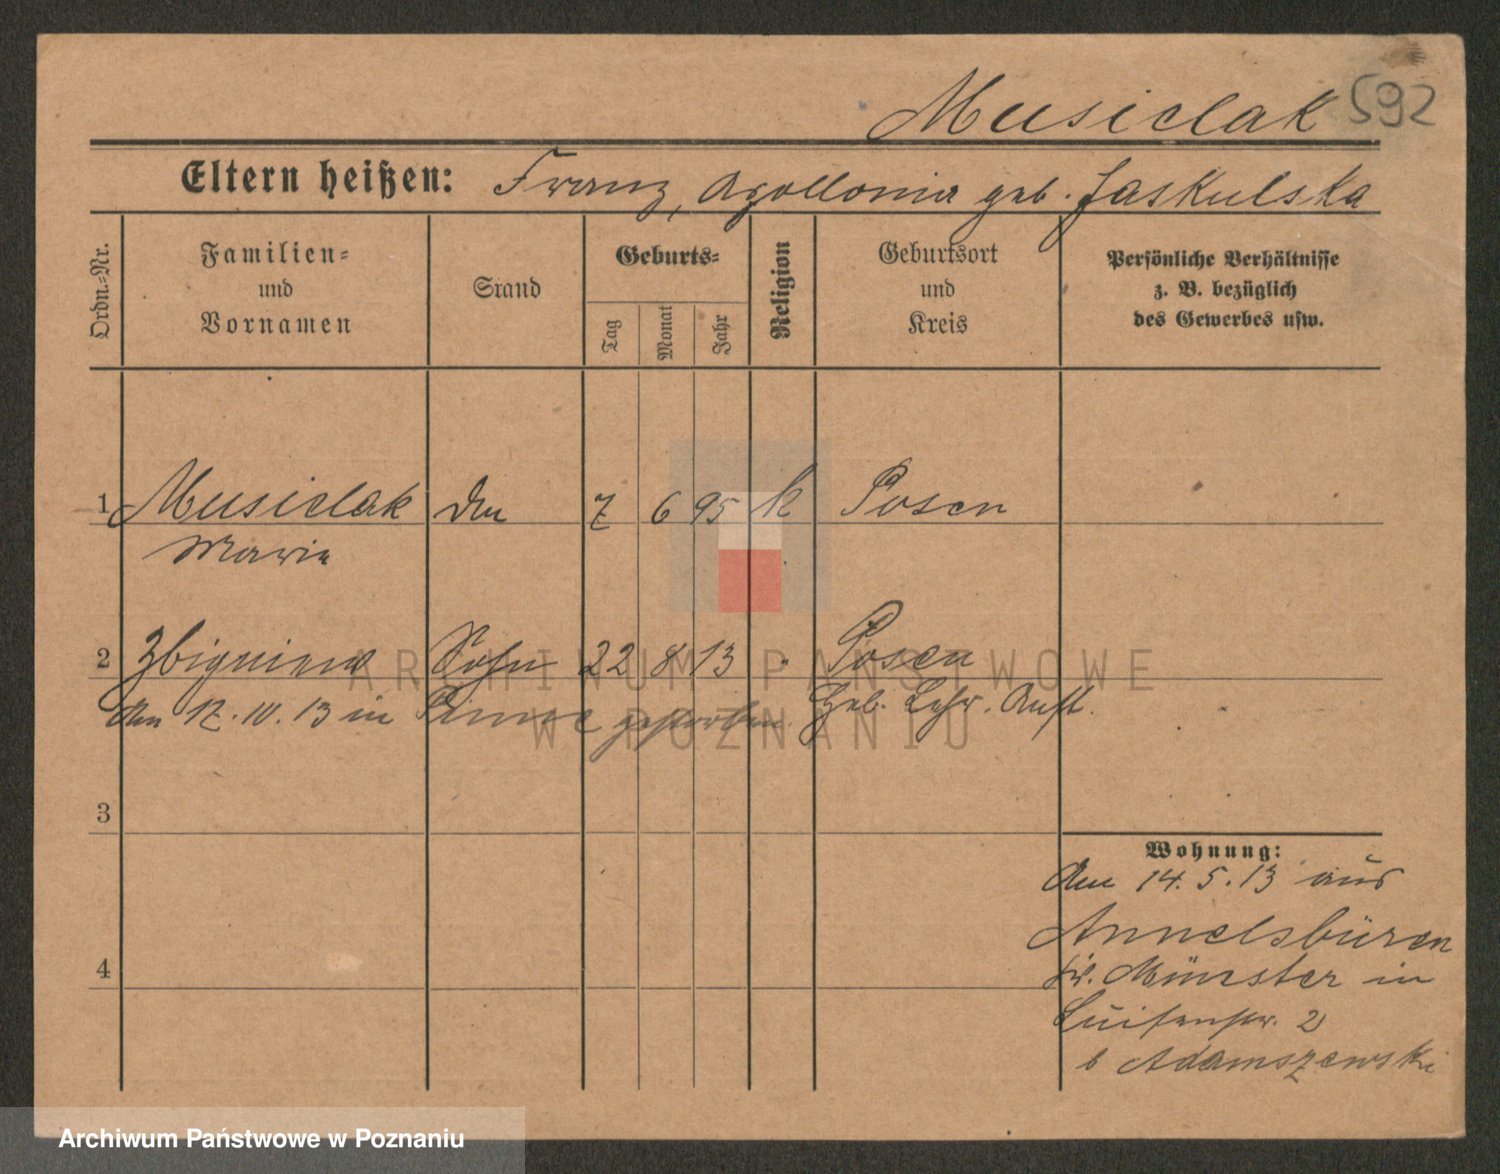 Musielak 592
Eltern heißen: Franz, Apollonia geb. Jaskulska
Ordn.-Nr.
Familien-
und
Vornamen
Stand
Geburts-
Tag
Monat
Jahr
Religion
Geburtsort
und
Kreis
Persönliche Verhältnisse
z. B. bezüglich
des Gewerbes usw.
1 Musielak 7 6 95 k Posen
Marie
2 Zbigniew Sohn 22 8 13 Posen
Am 12.10.13 in gestorben. Geb. Anst.
3
Wohnung:
Am 14.5.13 aus
Annelsbüren
4
Kr. Münster in
Luisenstr. 2
b Adamszewski
ARCHIWUM PAŃSTWOWE
W POZNANIU
Archiwum Państwowe w Poznaniu